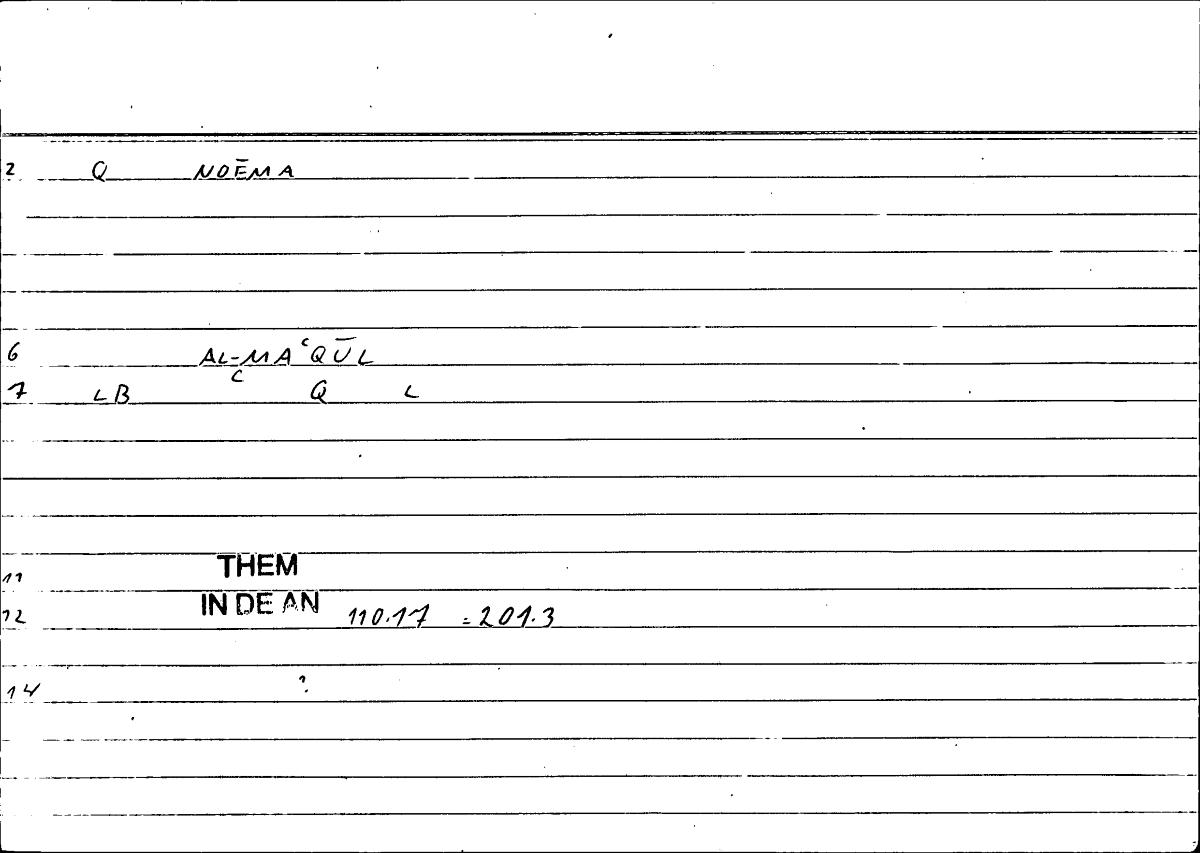 2 Q NOĒMA
6 AL-MAʿQŪL
7 LB C Q L
11 THEM
12 IN DE AN 110.17 = 201.3
14 ?